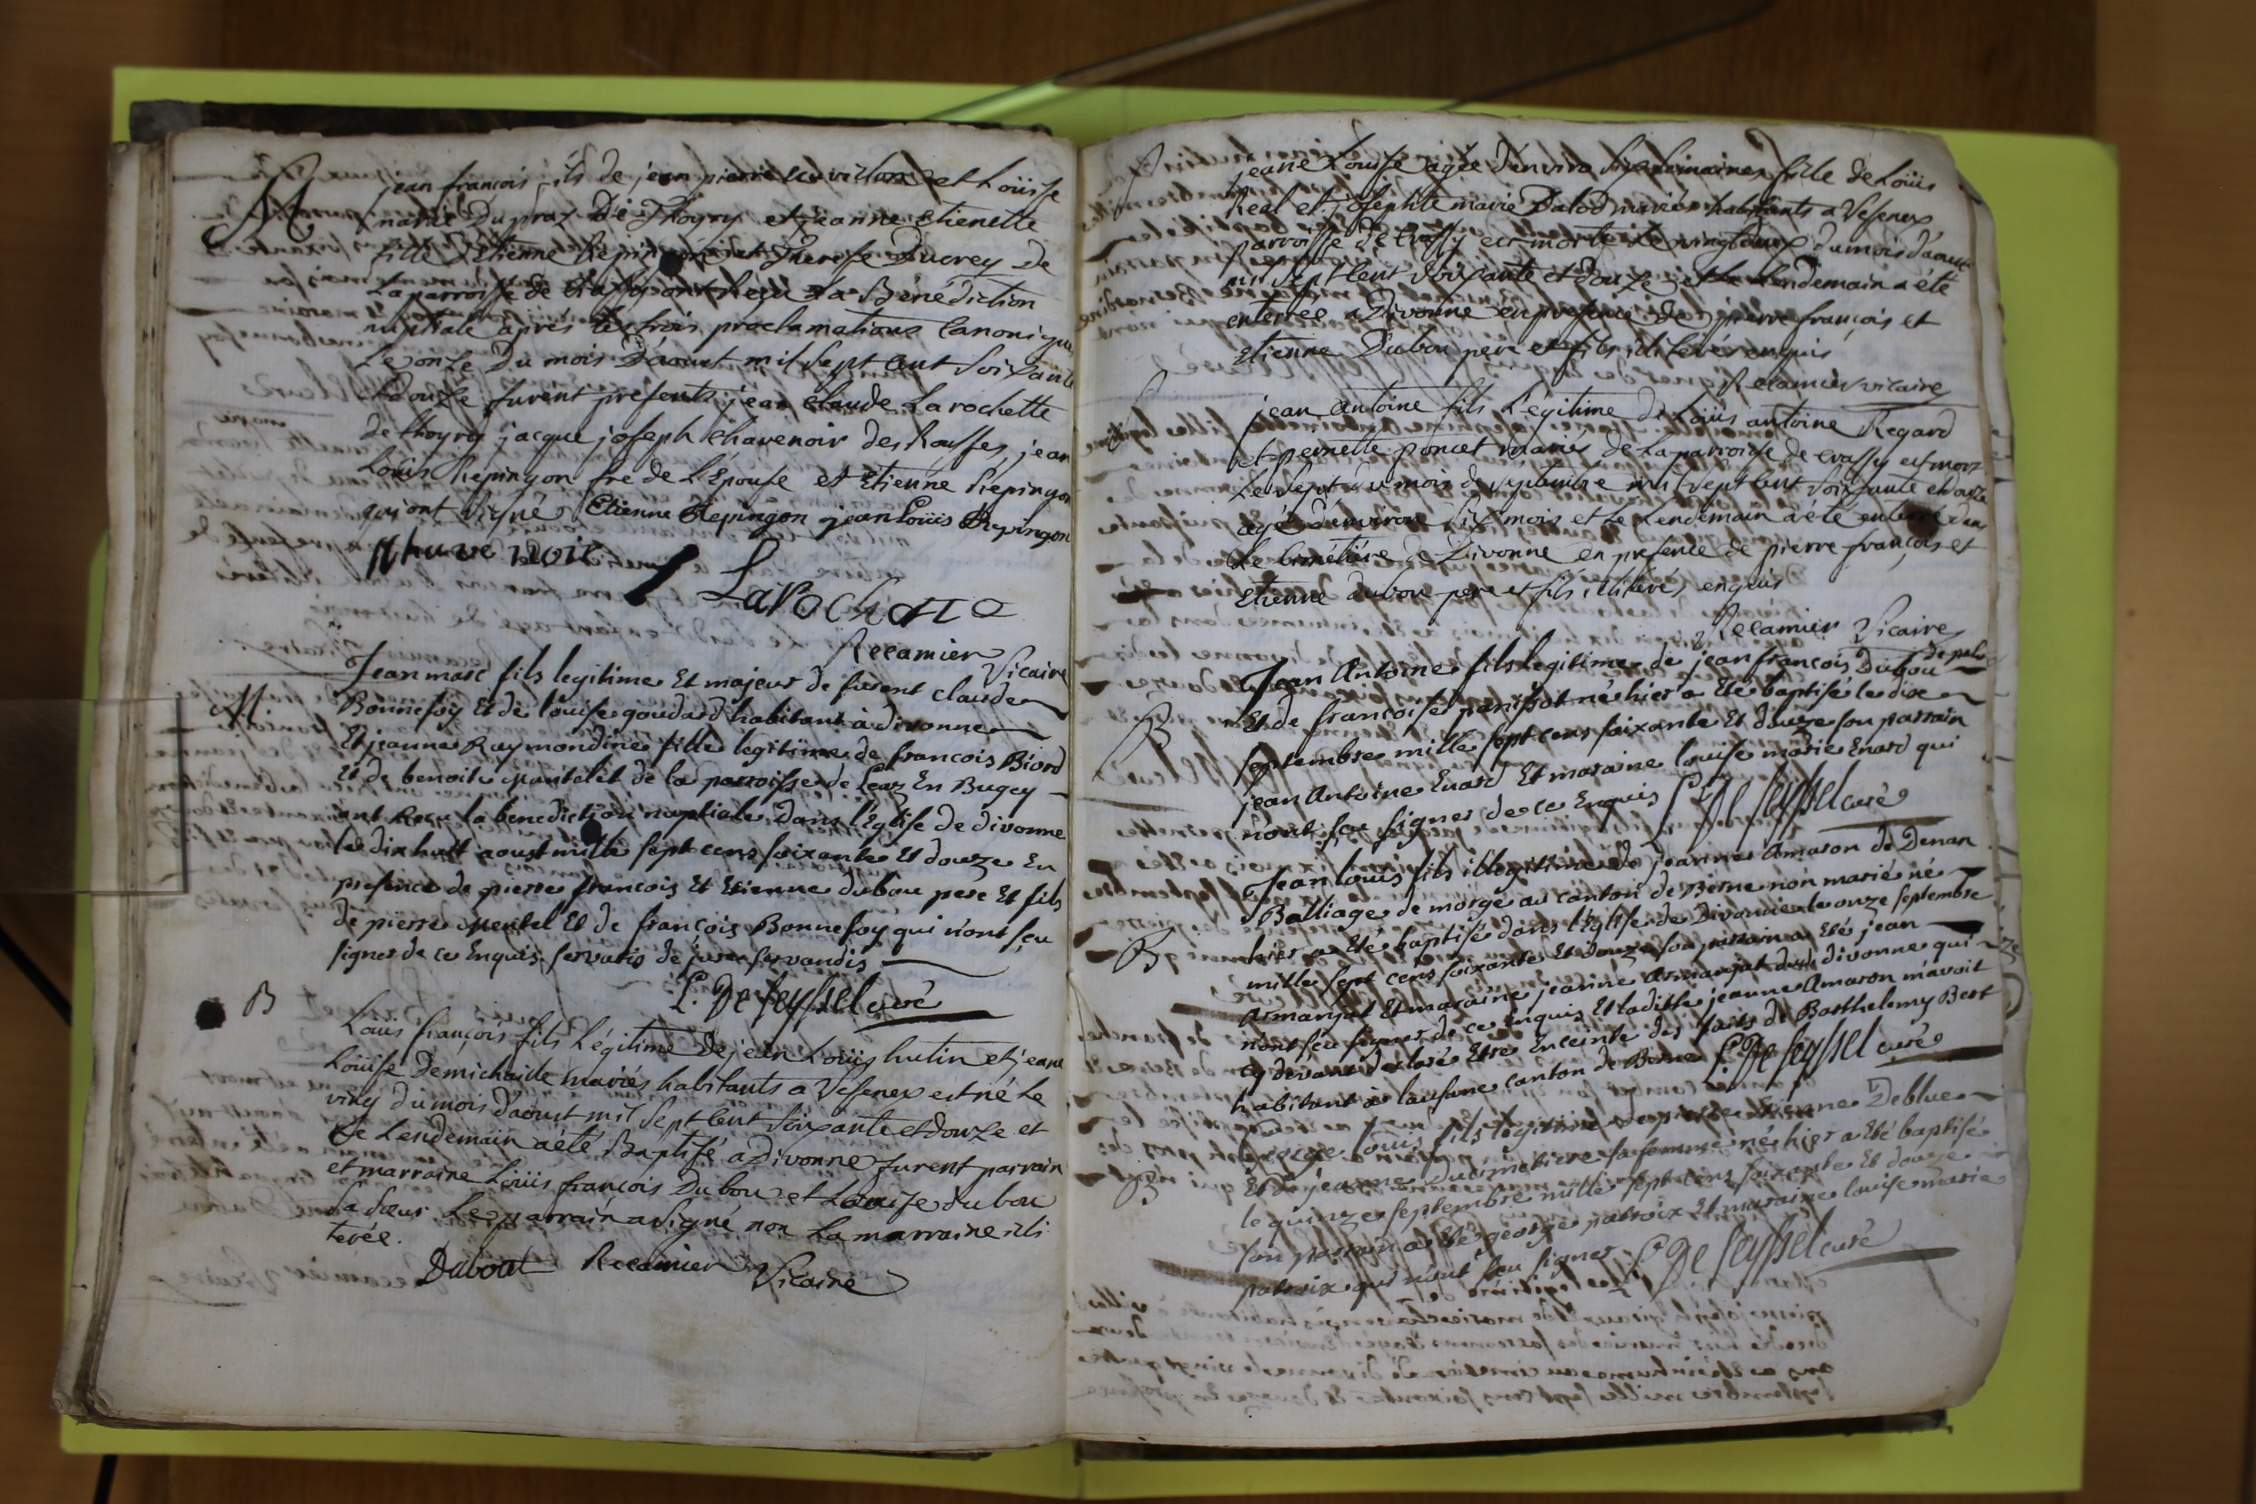 M
jean françois fils de jean pierre et Loüise
marie Dupraz De Thoyry et jeanne etienette
fille d'Etienne Repingon et Therese Ducrey De
La parroisse de Crassy ont Reçu La Benédiction
nuptiale après les trois proclamations Canoniques
Le onze Du mois D'aoust mil Sept Cent Soixante
et douze furent presents jean claude La rochette
de thoyry jacque joseph Chavenoir des Rousses, jean
Loüis Repingon fre de L'Epouse et Etienne Repingon
qui ont Signé Etienne Repingon jean Loüis Repingon
Larochette
Recamier Vicaire
M
Jean marc fils legitime Et majeur de furent claude
Bonnefoy Et de louise goudard habitant à divonne
Et jeanne Raymondine fille legitime de francois Biord
Et de benoite mantelit de la parroisse de Leaz En Bugey
ont Reçu la benediction nuptiale dans l'Eglise de divonne
le dix huit aoust mille sept cens soixante Et douze En
presence de pierre francois Et Etienne dubou pere Et fils
de pierre mentel Et de françois Bonnefoy qui n'ont sçu
signer de ce Enquis servatis de jure servandis
L. De Seyssel curé
B
Loüis françois fils Légitime De jean Loüis hutin et jeane
Loüise Demichaille mariés habitants a Vesenex est né Le
vint du mois d'aoust mil Sept Cent Soixante et douze et
Le Lendemain a été Baptisé a Divonne furent parrain
et marraine Loüis françois Dubou et Louise dubou
Sa Sœur Le parrain a Signé non La marraine illi
terée.
Dubout Recamier Vicaire
jeane Louise agée d'environ Six Semaines fille de Loüis
Real et josephte marie Dalod mariés habitants a Vesenex
parroisse de Crassy est morte Le vingt deux du mois d'aoust
mil Sept Cent Soixante et douze et Le Lendemain a été
enterrée a Divonne en presence de pierre françois et
Etienne Dubou pere et fils illiterés enquis
Recamier vicaire
jean antoine fils Légitime de Loüis antoine Regard
et pernette poncet mariés de La parroisse de Crassy est mort
Le Sept du mois de Septembre mil Sept Cent Soixante et douze
agé d'environ Six mois et Le Lendemain a été enterré dans
Le Cimétière de Divonne en presence de pierre françois et
Etienne dubou pere et fils illiterés enquis
Recamier Vicaire
B
Jean Antoine fils legitime de jean françois Dubou
Et de francoise panissot né hier a Eté baptisé le dix
septembre mille sept cens soixante Et douze son parrain
jean Antoine Enard Et maraine louise marie Enard qui
n'ont sçu signer de ce Enquis L. De Seyssel curé
B
Jean louis fils illegitime de jeanne Amaron de Denan
Balliage de morge au canton de Berne non marié né
hier a Eté baptisé dans l'Eglise de Divonne le onze septembre
mille sept cens soixante Et douze son parrain a Eté jean
Armanjat Et maraine jeanne Armanjat dud. divonne qui
n'ont sçu signer de ce Enquis Et ladite jeanne Amaron m'avoit
cy devant declaré Etre Enceinte des faits de Barthelemy Bert
habitant à lausane canton de Berne L. De Seyssel curé
George louis fils legitime de pierre Etienne Deblue
Et de jeanne Ducimetiere sa femme né hier a Eté baptisé
le quinze septembre mille sept cens soixante Et douze
son parrain a Eté george patroix Et maraine louise marie
patroix qui n'ont sçu signer L. De Seyssel curé